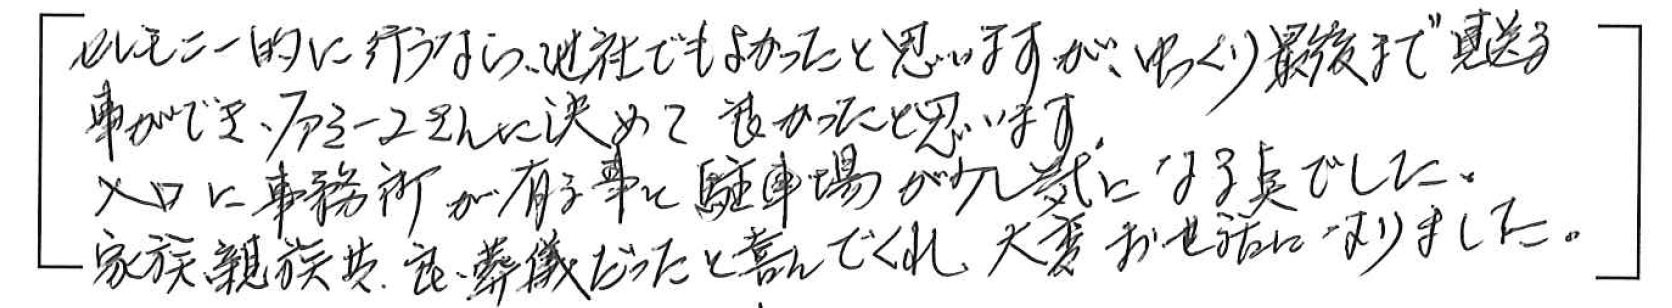 セレモニー的に行うなら、他社でもよかったと思いますが、ゆっくり最後まで見送る
事ができ、ファミーユさんに決めて良かったと思います。
入口に事務所が有る事と駐車場が少し気になる点でした。
家族、親族共、良い葬儀だったと喜んでくれ、大変お世話になりました。